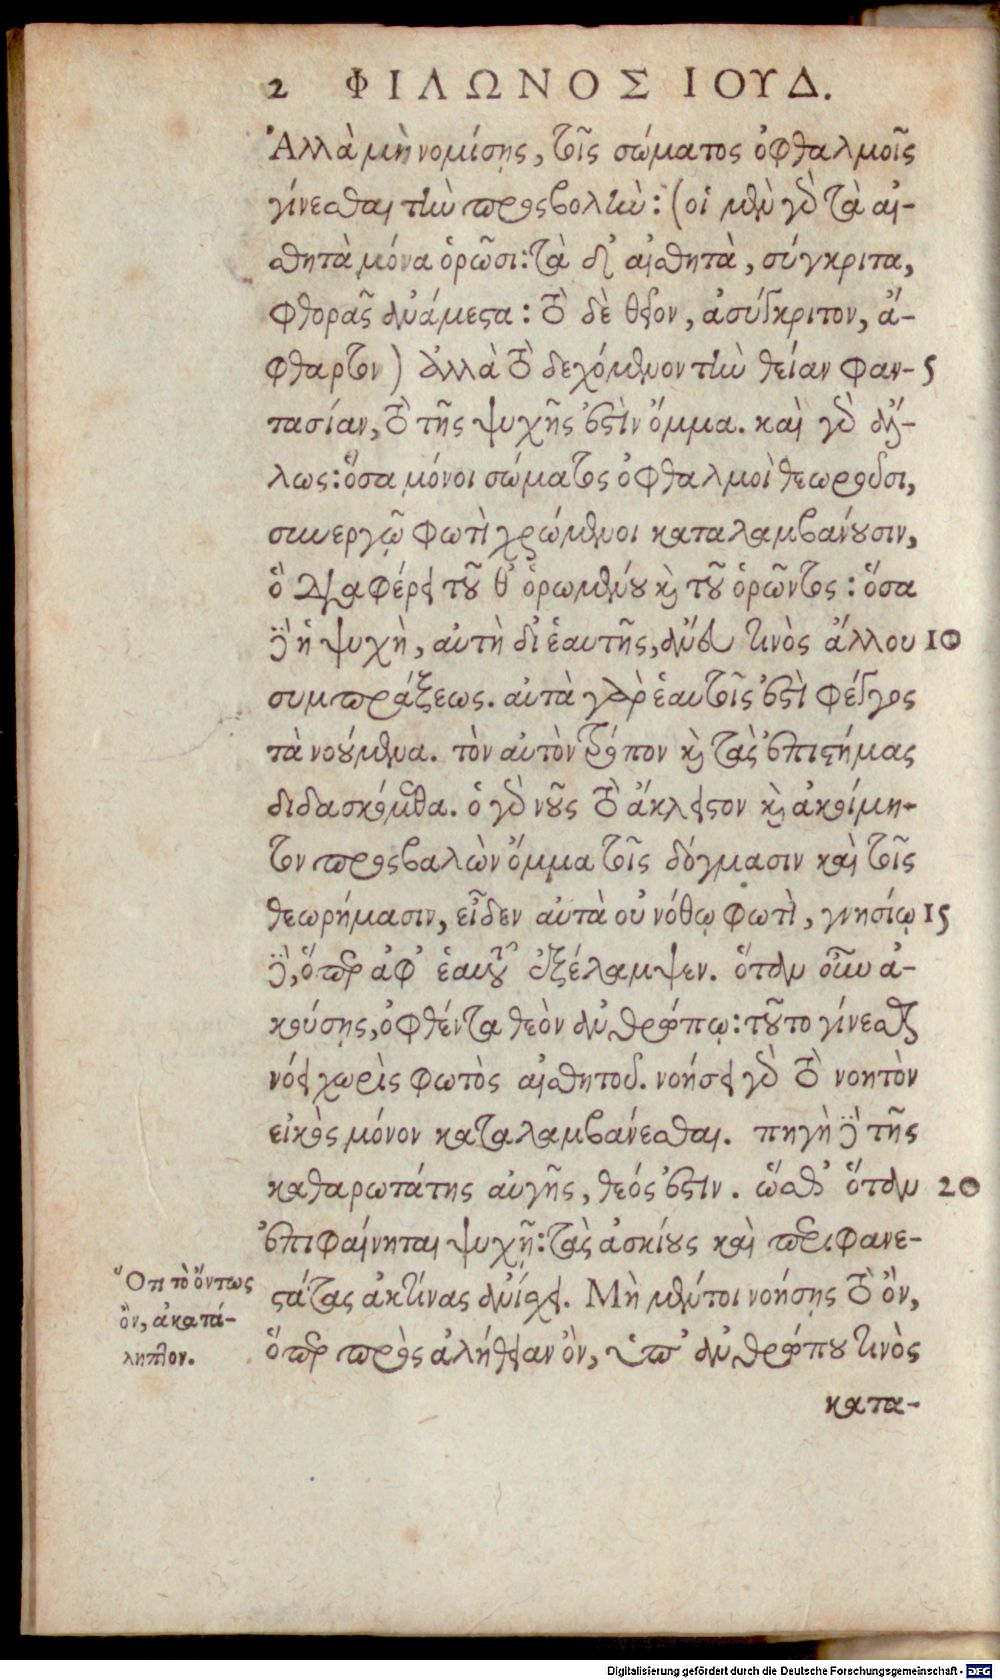 2 ΦΙΛΩΝΟΣ ΙΟΥΔ.
Ἀλλὰ μὴ νομίσῃς, τοῖς σώματος ὀφθαλμοῖς
γίνεσθαι τὴν προςβολὴν: (οἱ μὲν γὸ τὰ αἰ-
σθητὰ μόνα ὁρῶσι: τὰ δ' αἰσθητὰ, σύγκριτα,
φθορᾶς ἀνάμεστα: τὸ δὲ θεῖον, ἀσύγκριτον, ἄ-
φθαρτον) ἀλλὰ τὸ δεχόμενον τὴν θείαν φαν- 5
τασίαν, τὸ τῆς ψυχῆς ἐστὶν ὄμμα. καὶ γὸ ἄλ-
λως: ὅσα μόνοι σώματος ὀφθαλμοὶ θεωροῦσι,
συνεργῷ φωτὶ χρώμενοι καταλαμβάνουσιν,
ὃ διαφέρει τοῦ θ' ὁρωμένου καὶ τοῦ ὁρῶντος: ὅσα
δὲ ἡ ψυχὴ, αὐτὴ δι' ἑαυτῆς, ἄνευ τινὸς ἄλλου 10
συμπράξεως. αὐτὰ γὰρ ἑαυτοῖς ἐστὶ φέγγος
τὰ νοούμενα. τὸν αὐτὸν τρόπον καὶ τὰς ἐπιστήμας
διδασκόμεθα. ὁ γὸ νοῦς τὸ ἄκλειστον καὶ ἀκοίμη-
τον προςβαλὼν ὄμμα τοῖς δόγμασιν καὶ τοῖς
θεωρήμασιν, εἶδεν αὐτὰ οὐ νόθῳ φωτὶ, γνησίῳ 15
δὲ, ὅπερ ἀφ' ἑαυτοῦ ἐξέλαμψεν. ὅταν οὖν ἀ-
κούσῃς, ὀφθέντα θεὸν ἀνθρώπῳ: τοῦτο γίνεσθαι
νόει χωρὶς φωτὸς αἰσθητοῦ. νοήσει γὸ τὸ νοητὸν
εἰκὸς μόνον καταλαμβάνεσθαι. πηγὴ δὲ τῆς
καθαρωτάτης αὐγῆς, θεός ἐστιν. ὥσθ' ὅταν 20
ἐπιφαίνηται ψυχῇ: τὰς ἀσκίους καὶ περιφανε-
στάτας ἀκτίνας ἀνίσχει. Μὴ μέντοι νοήσῃς τὸ ὂν,
ὅπερ πρὸς ἀλήθειαν ὂν, ὑπ' ἀνθρώπου τινὸς
κατα-
Ὅτι τὸ ὄντως
ὂν, ἀκατά-
ληπτον.
Digitalisierung gefördert durch die Deutsche Forschungsgemeinschaft - DFG